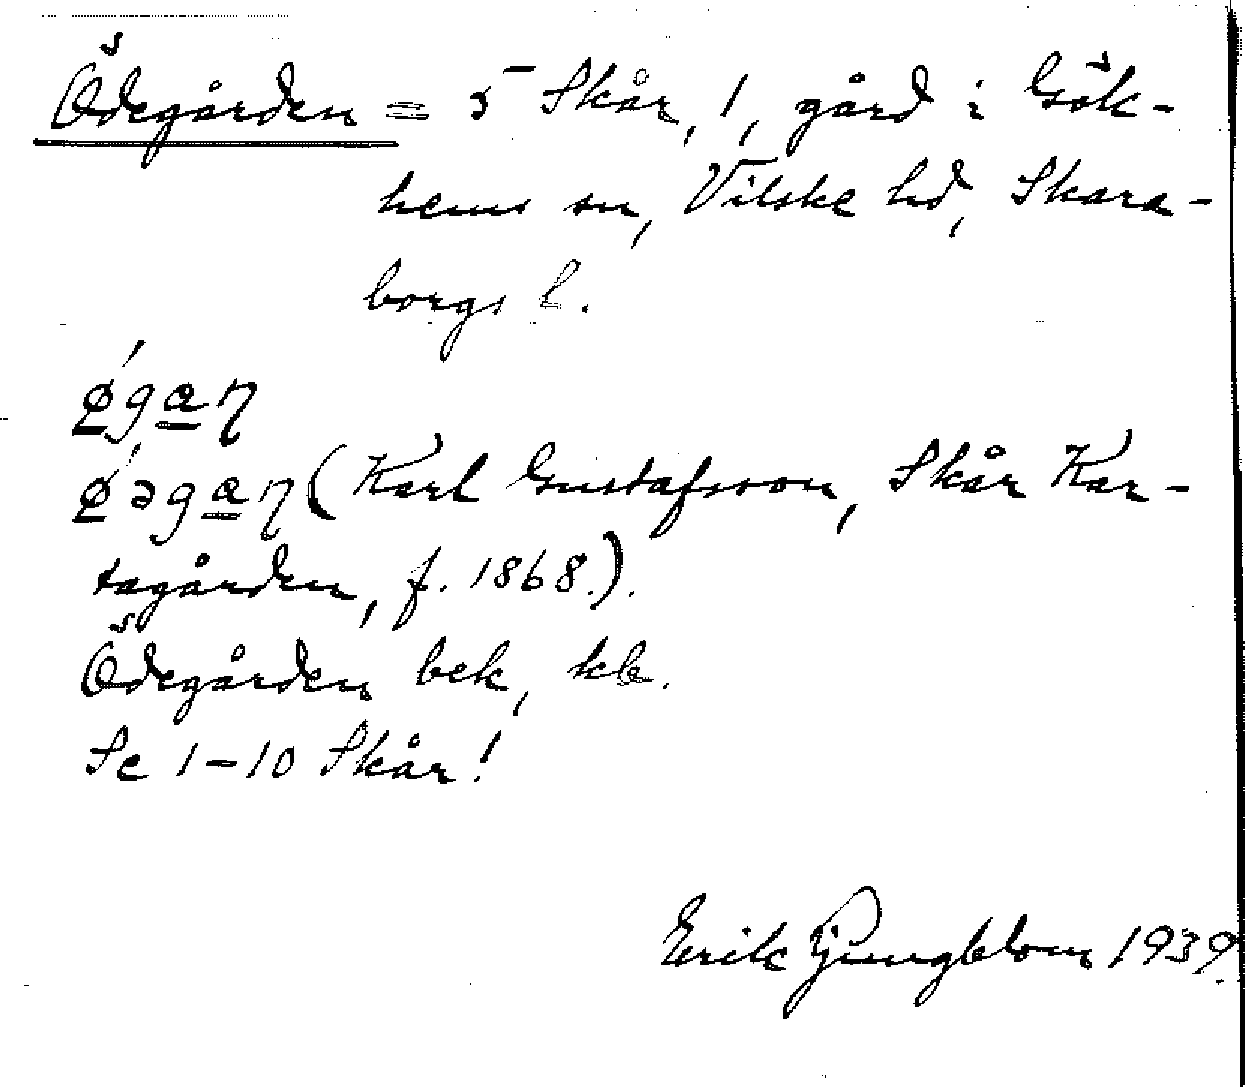 Ödegården = 5 Skår, 1, gård i Gök-
hems sn, Vilske hd, Skara-
borgs l.
ǿgaɳ
ǿəgaɳ (Karl Gustafsson, Skår Kar-
tagården, f. 1868.).
Ödegården bek, kb.
Se 1-10 Skår!
Erik Ljungblom 1939.